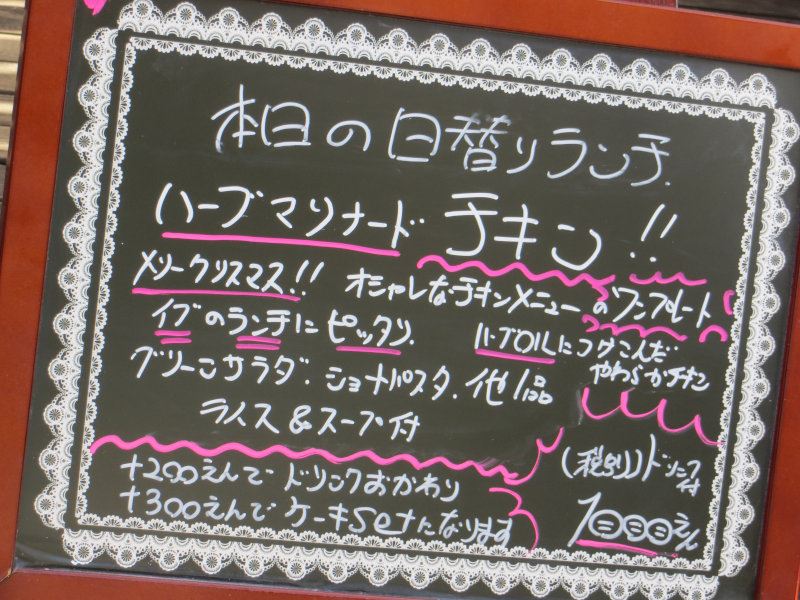 本日の日替りランチ.
ハーブマリナード チキン!!
メリークリスマス!! オシャレなチキンメニューのワンプレート
イブのランチにピッタリ.
ハーブOILにつけこんだ
やわらかチキン
グリーンサラダ.ショートパスタ.他1品
ライス&スープ付
(税別)ドリンク付
1000えん
+200えんでドリンクおかわり
+300えんでケーキsetになります